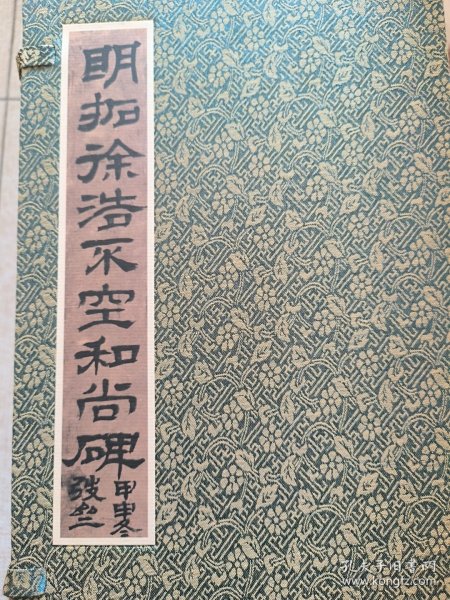 明拓徐浩不空和尚碑
甲申冬
孔夫子旧书网
book.kongfz.com